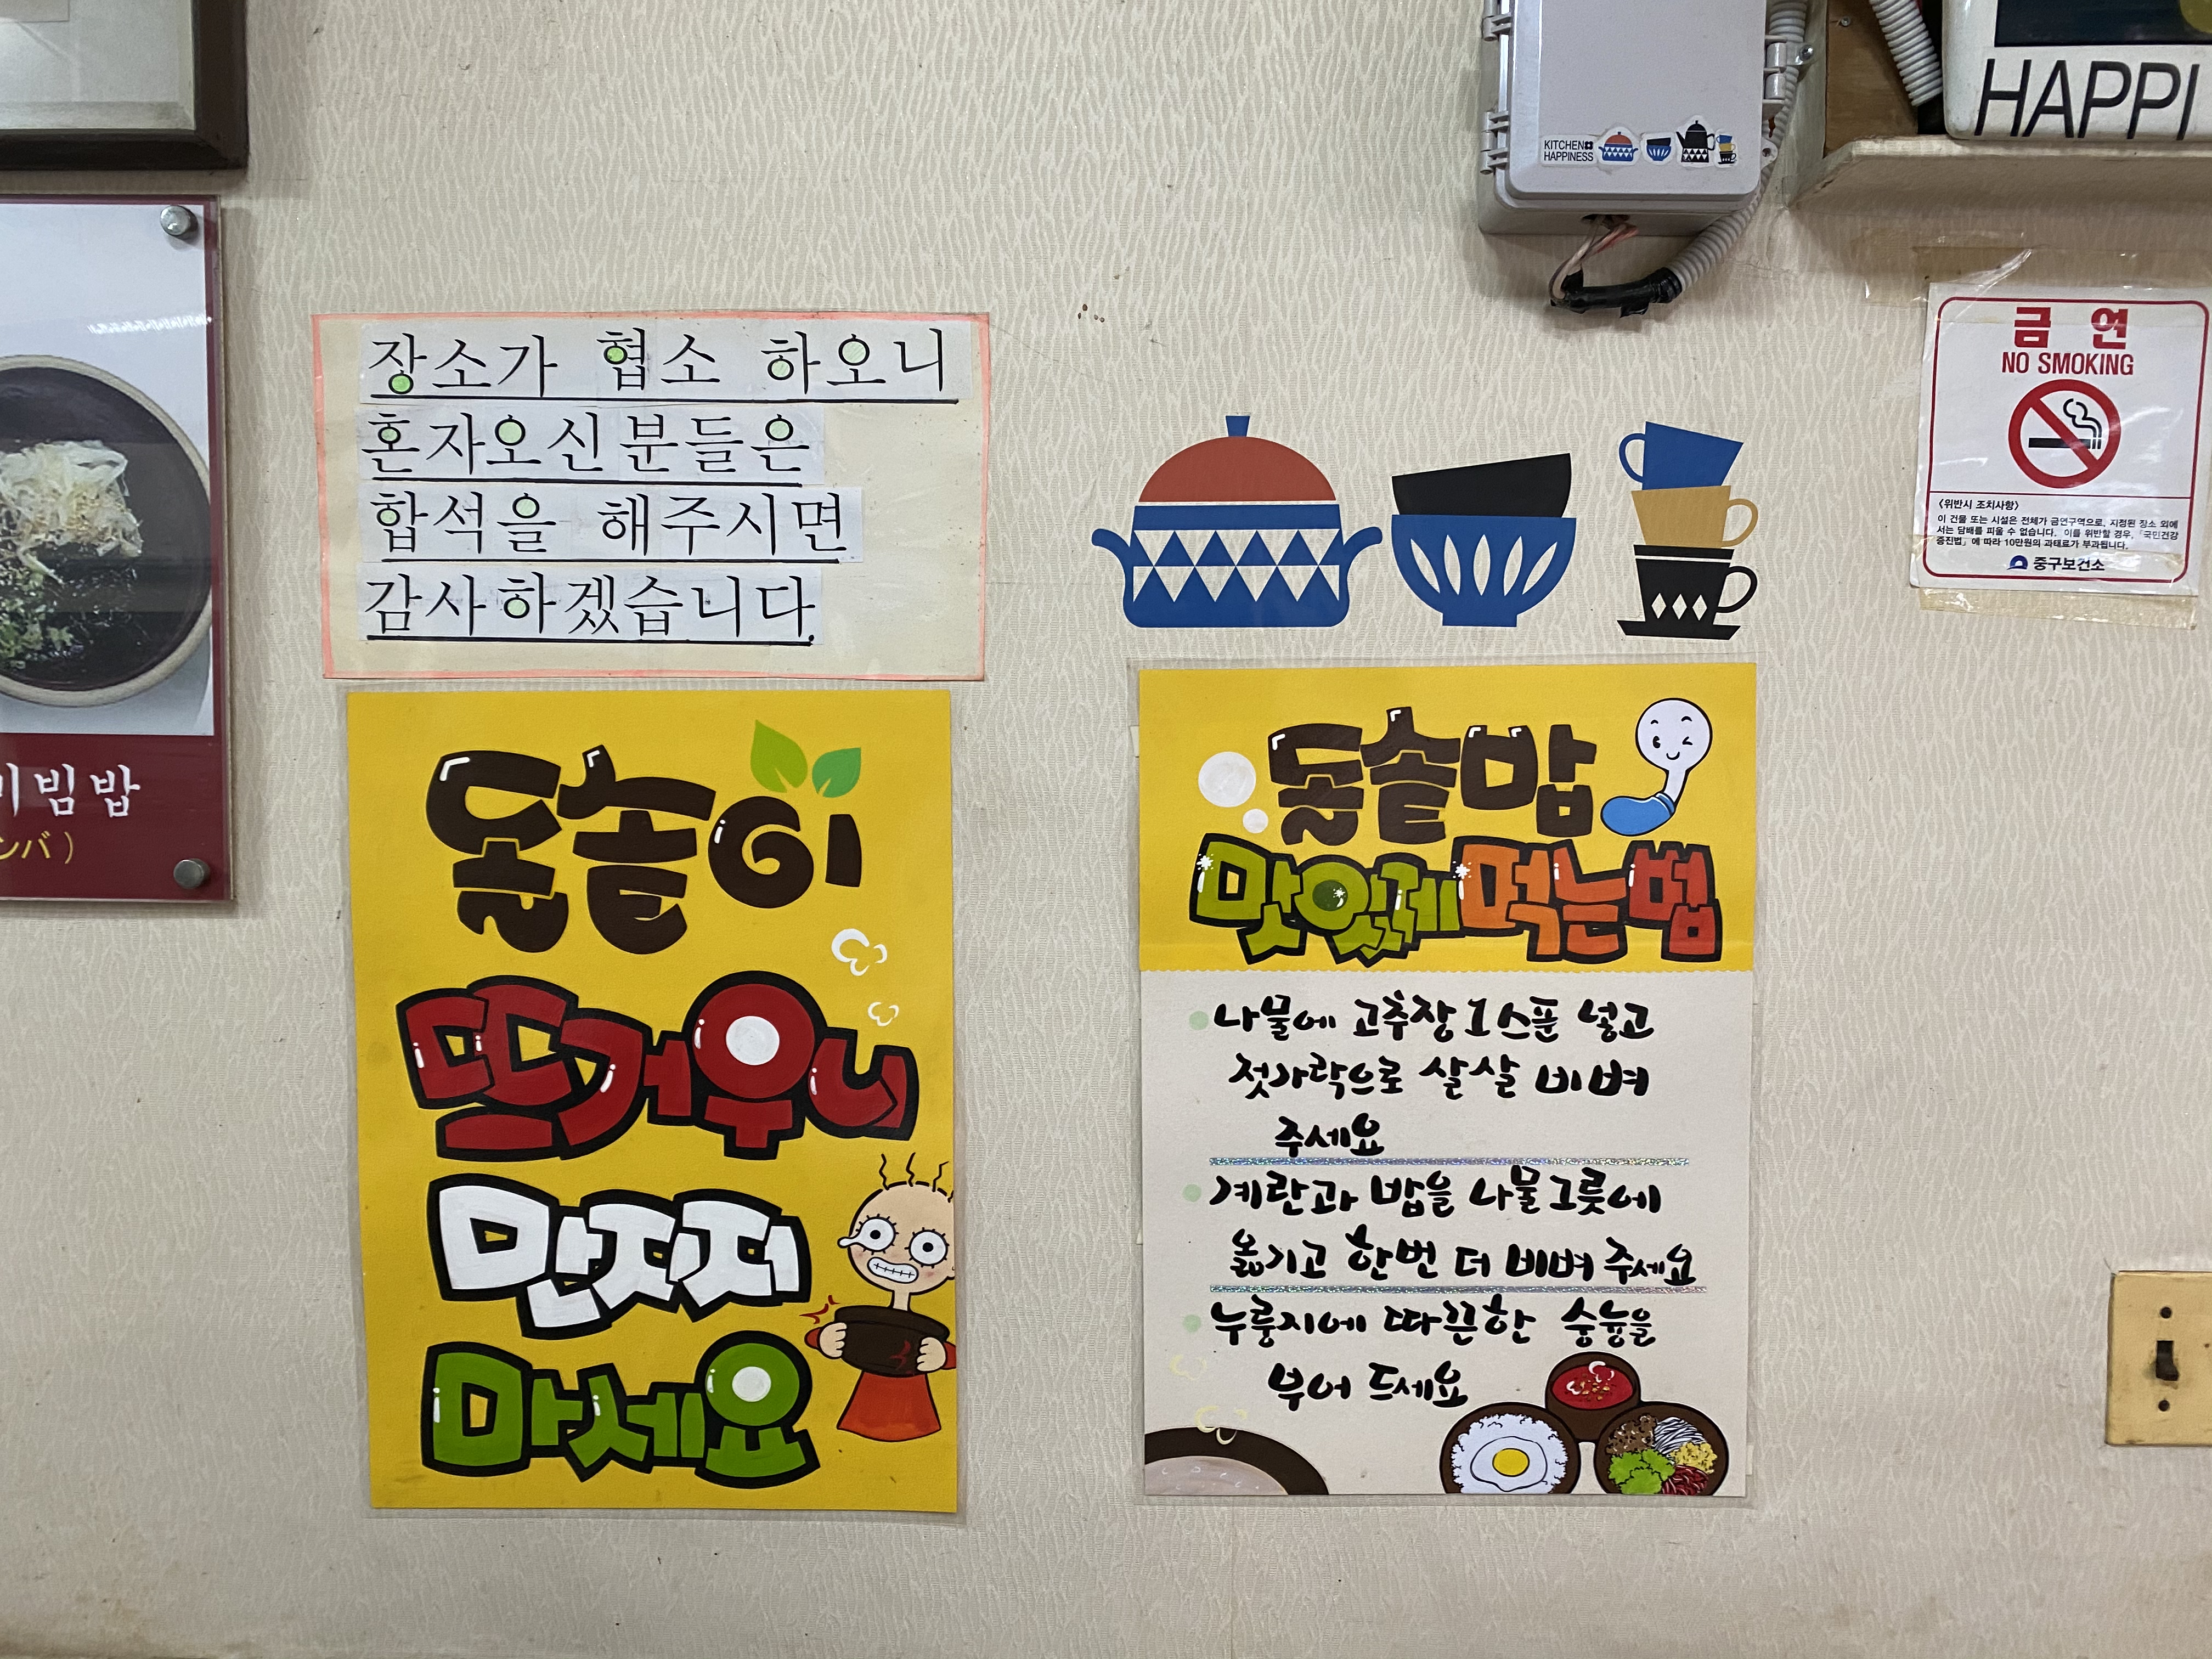 HAPPI
KITCHEN
HAPPINESS
장소가 협소 하오니
혼자오신분들은
합석을 해주시면
감사하겠습니다.
금 연
NO SMOKING
<위반시 조치사항>
이 건물 또는 시설은 전체가 금연구역으로, 지정된 장소 외에
서는 담배를 피울 수 없습니다. 이를 위반할 경우, 「국민건강
증진법」에 따라 10만원의 과태료가 부과됩니다.
중구보건소
비빔밥
ンバ)
돌솥이
뜨거우니
만지지
마세요
돌솥밥
맛있게먹는법
나물에 고추장 1스푼 넣고
젓가락으로 살살 비벼
주세요
계란과 밥을 나물그릇에
옮기고 한번 더 비벼 주세요
누룽지에 따끈한 숭늉을
부어 드세요